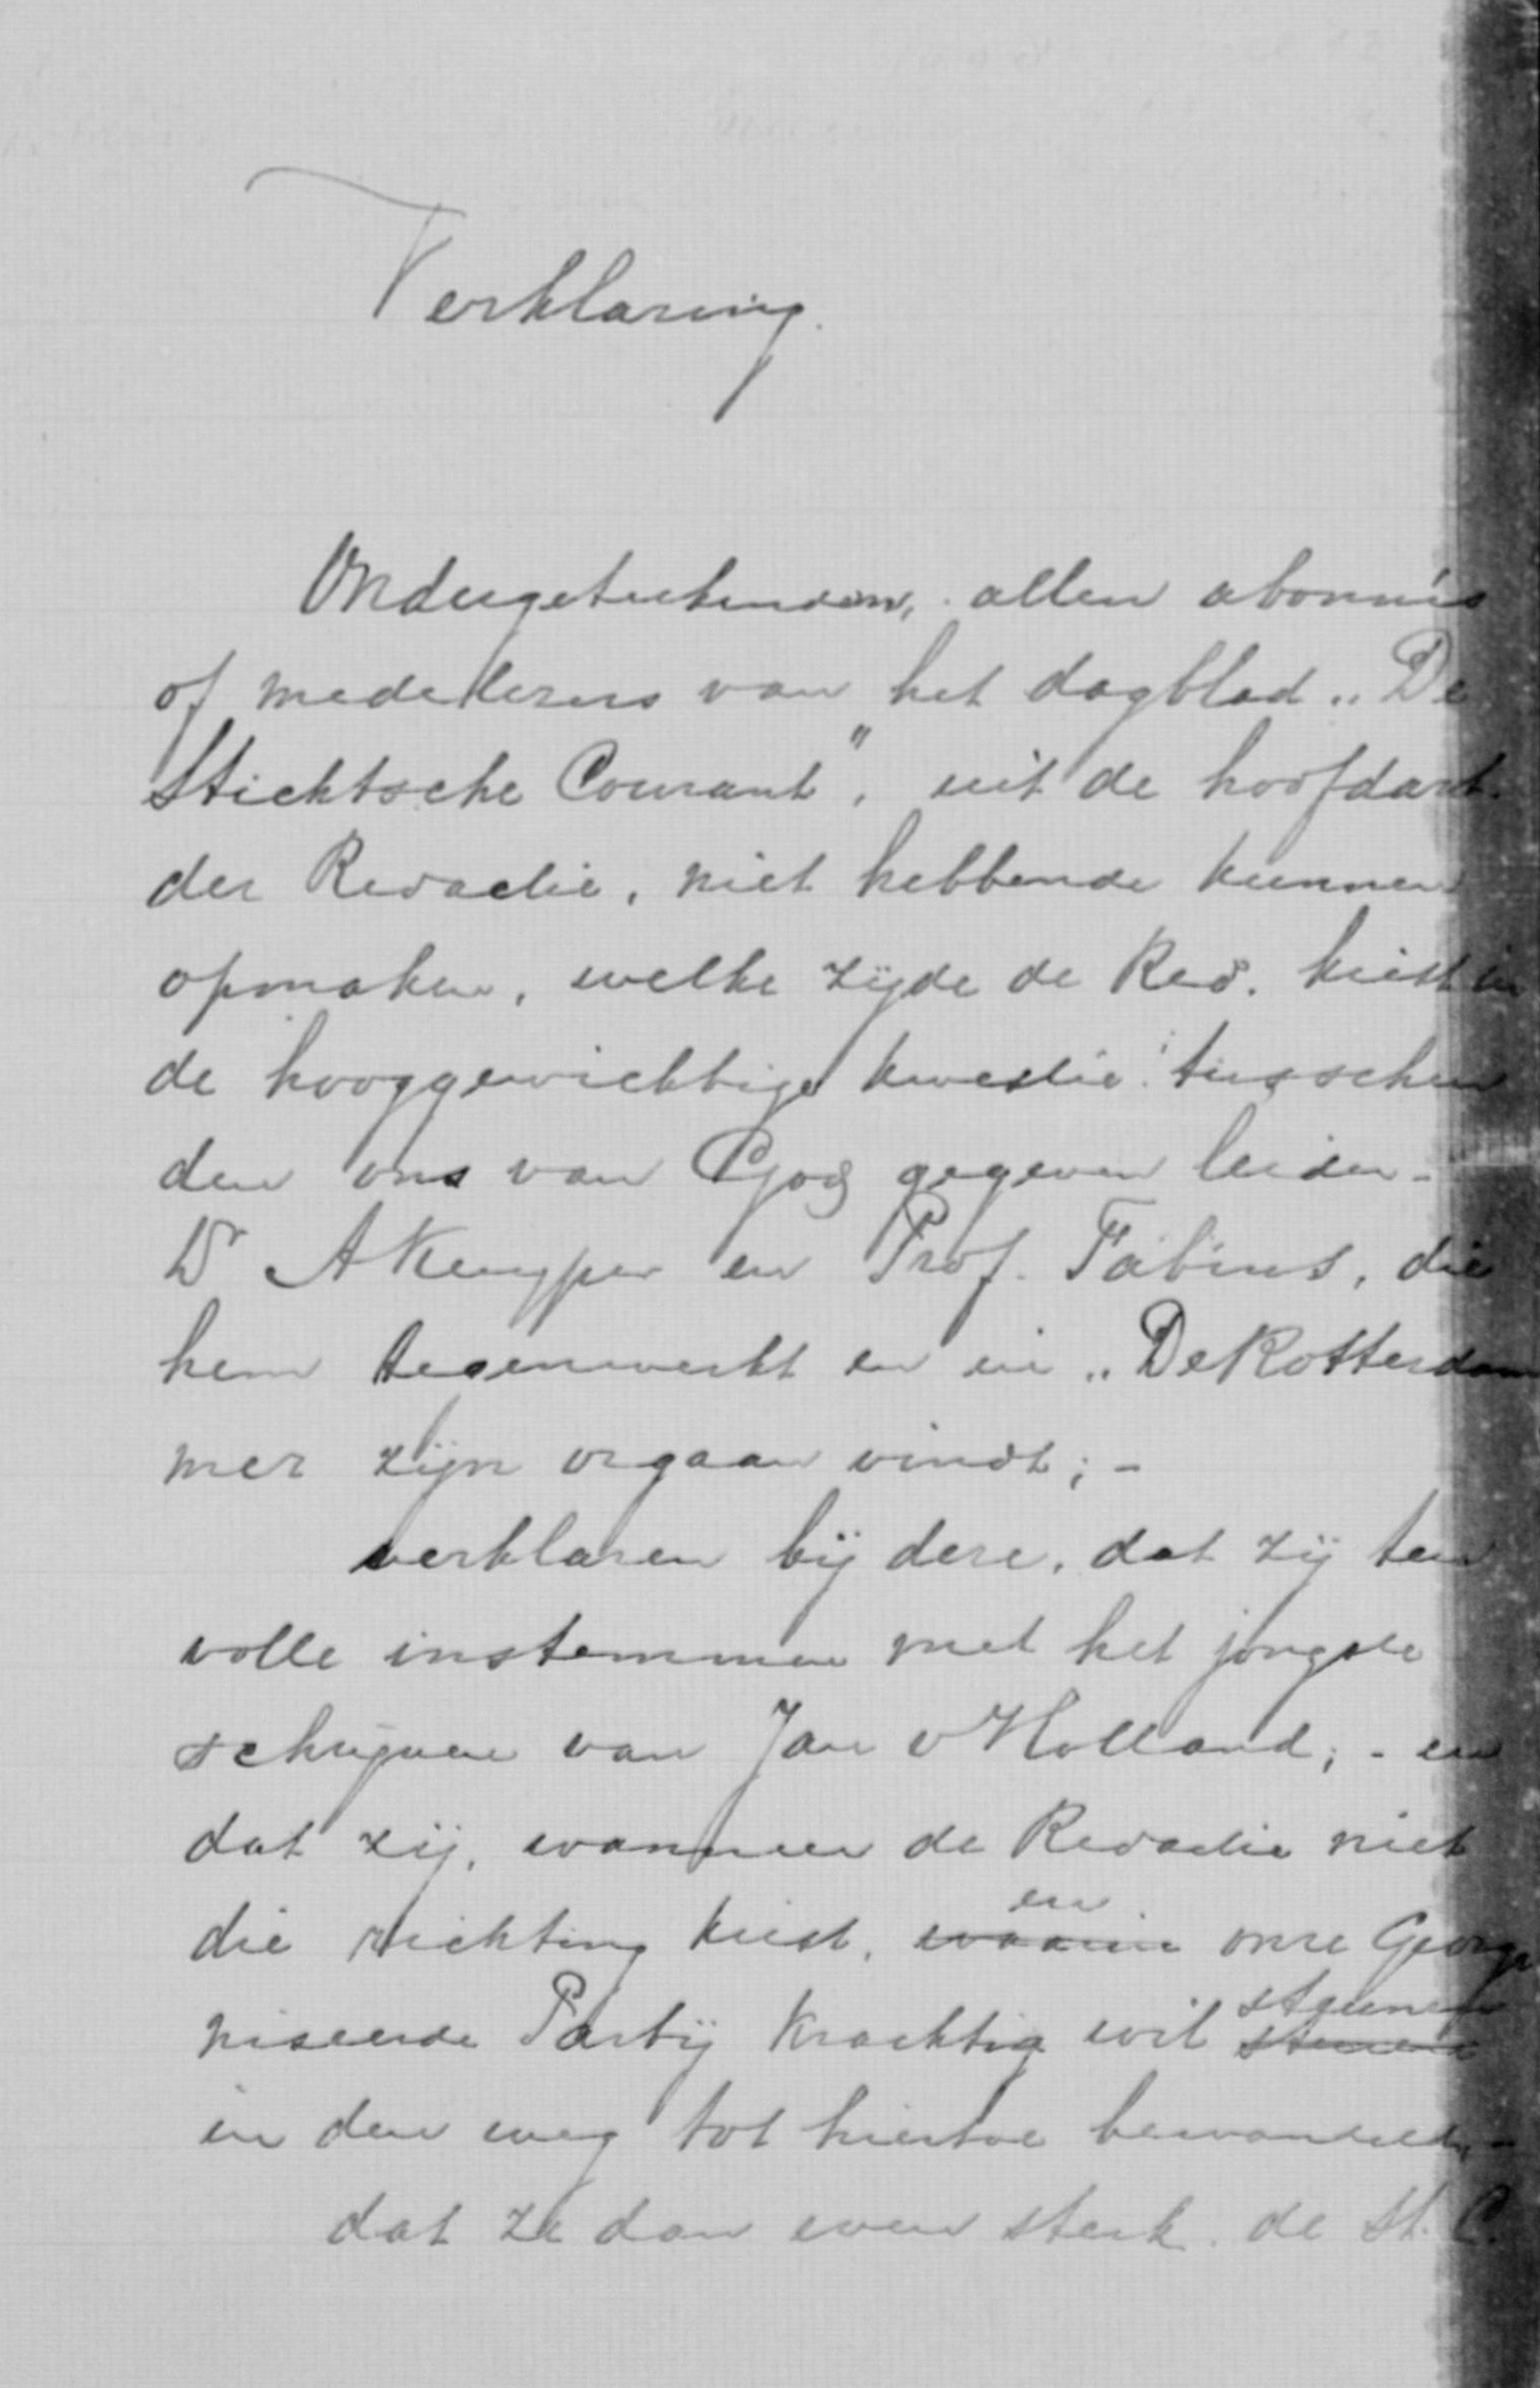 Verklaring.
Ondergeteekenden, allen abonnés
of medelezers van het dagblad „De
Stichtsche Courant", uit de hoofdart.
der Redactie, niet hebbende kunnen
opmaken, welke zijde de Red. kiest in
de hooggewichtige kwestie tusschen
den ons van God gegeven leider -
Dr A Kuyper en Prof. Fabius, die
hem tegenwerkt en in „De Rotterdam
mer zijn orgaan vindt; -
verklaren bij deze, dat zij ten
volle instemmen met het jongste
schrijven van Jan v Holland; - en
dat zij, wanneer de Redactie niet
die richting kiest, waarin en onze Georga
niseerde Partij krachtig wil steunen steunen
in den weg tot hiertoe bewandeld, -
dat ze dan even sterk de St. C.